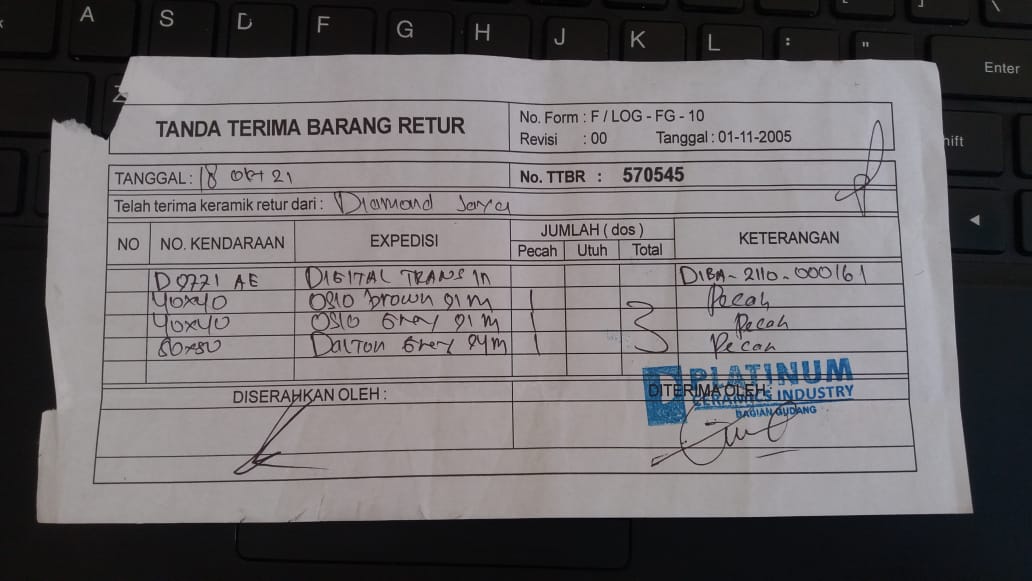 A S D F G H J K L : "
Enter
Z
hift
TANDA TERIMA BARANG RETUR
No. Form : F / LOG - FG - 10
Revisi : 00 Tanggal : 01-11-2005
TANGGAL : 18 Okt 21
No. TTBR : 570545
Telah terima keramik retur dari : Diamond Jaya
NO NO. KENDARAAN EXPEDISI JUMLAH ( dos ) KETERANGAN
Pecah Utuh Total
D 9771 AE DIGITAL TRANS IN DIBA - 2110 - 000161
40x40 OSLO brown 91 M 1 Pecah
40x40 OSLO Grey 91 M 1 3 Pecah
80x80 Dalton Grey 94 M 1 Pecah
DISERAHKAN OLEH : DITERIMA OLEH :
PLATINUM
CERAMICS INDUSTRY
BAGIAN GUDANG